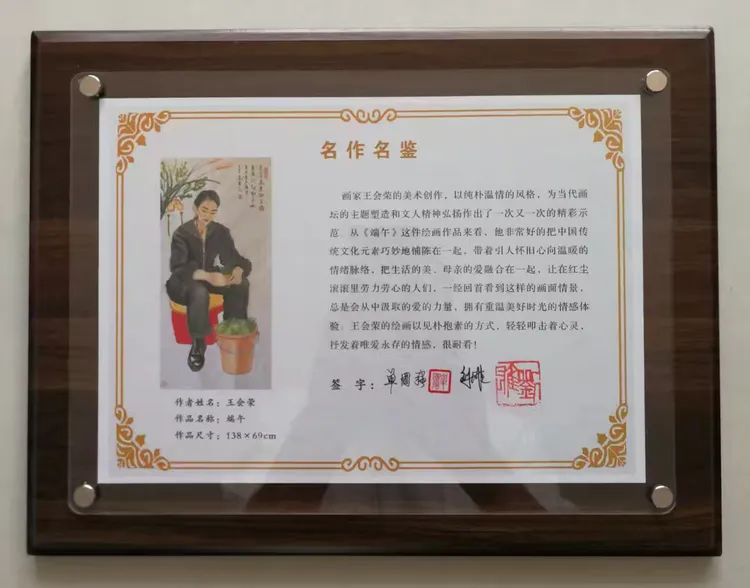 名作名鉴
画家王会荣的美术创作，以纯朴温情的风格，为当代画
坛的主题塑造和文人精神弘扬作出了一次又一次的精彩示
范。从《端午》这件绘画作品来看，他非常好的把中国传
统文化元素巧妙地铺陈在一起，带着引人怀旧心向温暖的
情绪脉络，把生活的美、母亲的爱融合在一起，让在红尘
滚滚里劳力劳心的人们，一经回首看到这样的画面情景，
总是会从中汲取的爱的力量，拥有重温美好时光的情感体
验。王会荣的绘画以见朴抱素的方式，轻轻叩击着心灵，
抒发着唯爱永存的情感，很耐看！
签 字：单国强
作者姓名：王会荣
作品名称：端午
作品尺寸：138×69cm